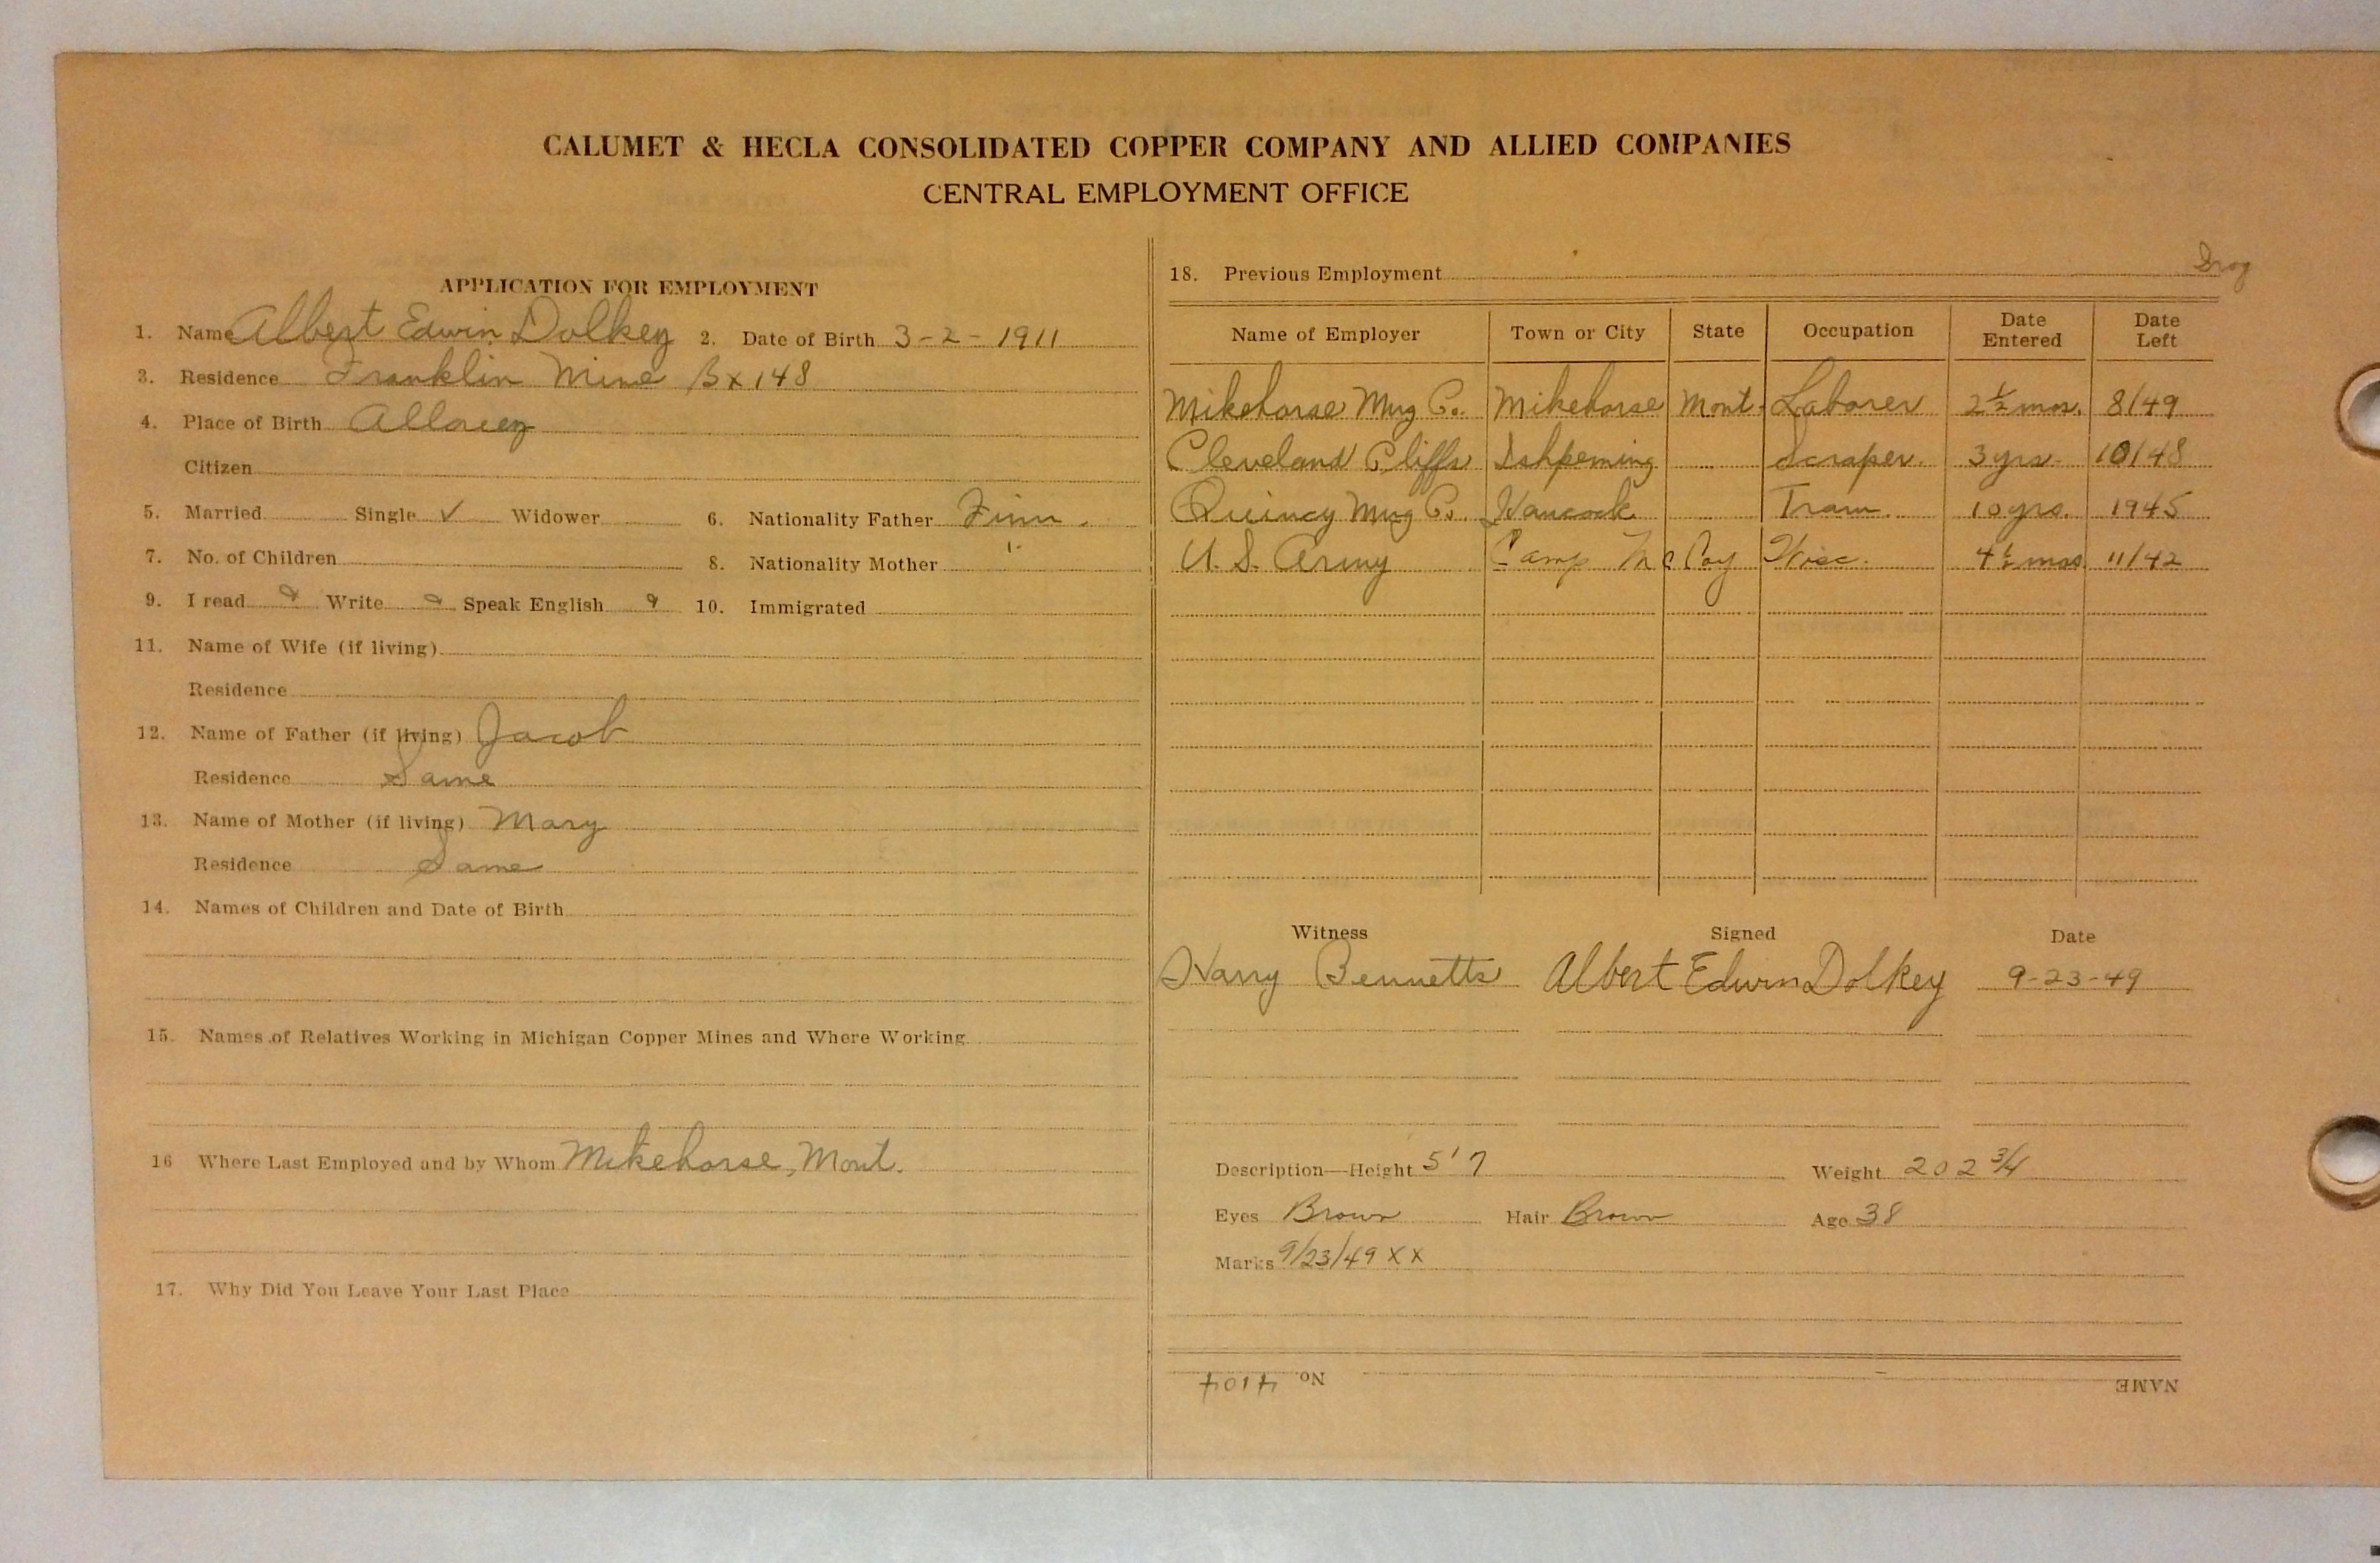 CALUMET & HECLA CONSOLIDATED COPPER COMPANY AND ALLIED COMPANIES
CENTRAL EMPLOYMENT OFFICE
APPLICATION FOR EMPLOYMENT
1. Name Albert Edwin Dolkey 2. Date of Birth 3-2-1911
3. Residence Franklin Mine Bx 148
4. Place of Birth Allouez
Citizen
5. Married Single ✓ Widower 6. Nationality Father Finn.
7. No. of Children 8. Nationality Mother "
9. I read Write Speak English 10. Immigrated
11. Name of Wife (if living)
Residence
12. Name of Father (if living) Jacob
Residence Same
13. Name of Mother (if living) Mary
Residence Same
14. Names of Children and Date of Birth
15. Names of Relatives Working in Michigan Copper Mines and Where Working
16 Where Last Employed and by Whom Mikehorse, Mont.
17. Why Did You Leave Your Last Place
18. Previous Employment
Name of Employer Town or City State Occupation Date Entered Date Left
Mikehorse Mng Co. Mikehorse Mont. Laborer 2½ mos. 8/49
Cleveland Cliffs Ishpeming Scraper. 3 yrs. 10/48
Quincy Mng Co. Hancock Tram. 10 yrs. 1945
U.S. Army Camp McCoy Wisc. 4½ mos 11/42
Witness Signed Date
Harry Bennetts Albert Edwin Dolkey 9-23-49
Description—Height 5'7 Weight 202 3/4
Eyes Brown Hair Brown Age 38
Marks 9/23/49 x x
NAME No. 4104